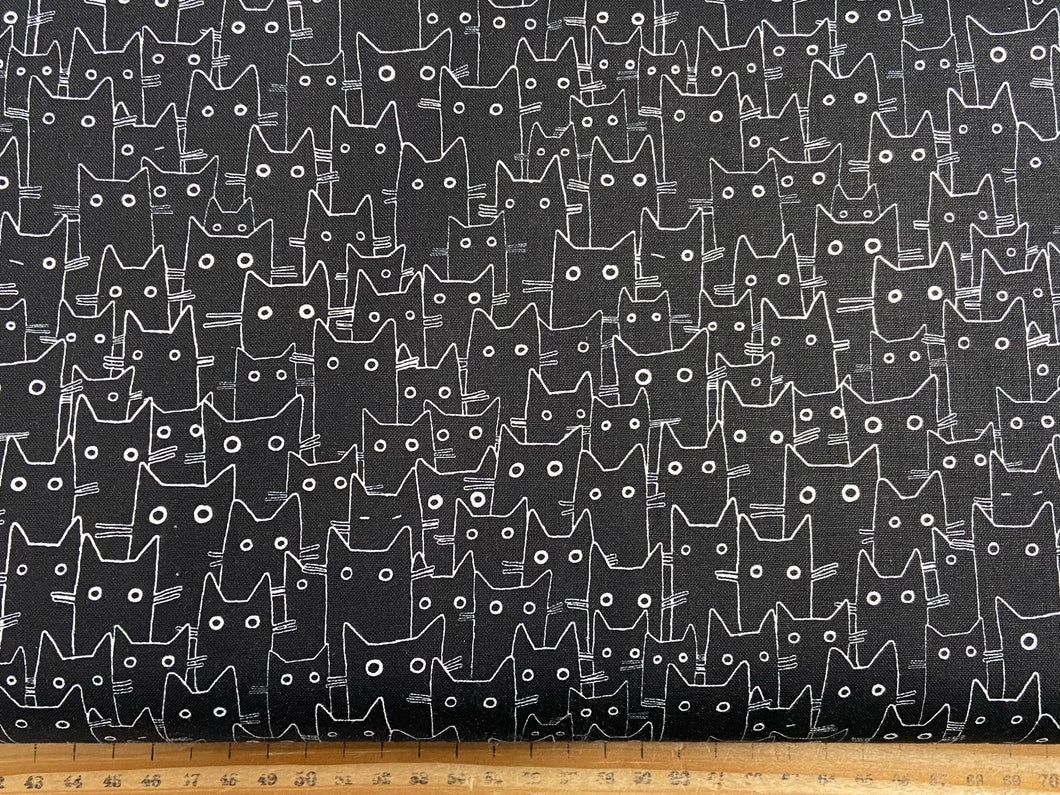 43 44 45 46 47 48 49 50 51 52 53 54 55 56 57 58 59 60 61 62 63 64 65 66 67 68 69 70